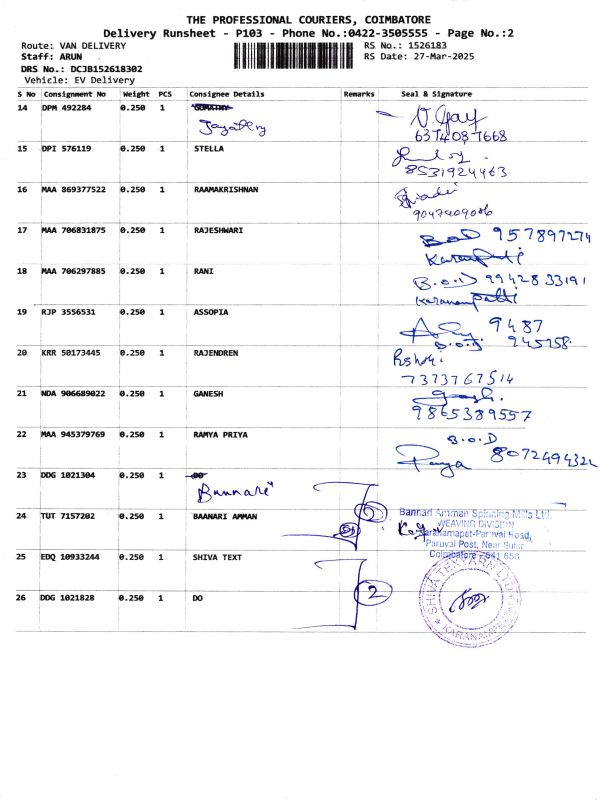 THE PROFESSIONAL COURIERS, COIMBATORE
Delivery Runsheet - P103 - Phone No.:0422-3505555 - Page No.:2
Route: VAN DELIVERY
RS No.: 1526183
Staff: ARUN
RS Date: 27-Mar-2025
DRS No.: DCJB152618302
Vehicle: EV Delivery
S No Consignment No Weight PCS Consignee Details Remarks Seal & Signature
14 DPM 492284 0.250 1
6374087668
15 DPI 576119 0.250 1 STELLA
8531924463
16 MAA 869377522 0.250 1 RAAMAKRISHNAN
9047409086
17 MAA 706831875 0.250 1 RAJESHWARI
957897274
18 MAA 706297885 0.250 1 RANI B.O.D 9942833191
19 RJP 3556531 0.250 1 ASSOPIA 9487
945758
20 KRR 50173445 0.250 1 RAJENDREN
7373767514
21 NDA 906689022 0.250 1 GANESH
9865389557
22 MAA 945379769 0.250 1 RAMYA PRIYA B.O.D
8072494322
23 DDG 1021304 0.250 1 DO
Bannari
24 TUT 7157202 0.250 1 BAANARI AMMAN
Bannari Amman Spinning Mills Ltd.
WEAVING DIVISION
Karanamapet-Paruvai Road,
Paruvai Post, Near Sulur
Coimbatore - 641 658
25 EDQ 10933244 0.250 1 SHIVA TEXT
2
26 DDG 1021828 0.250 1 DO
SHIVA TEXYARN LTD